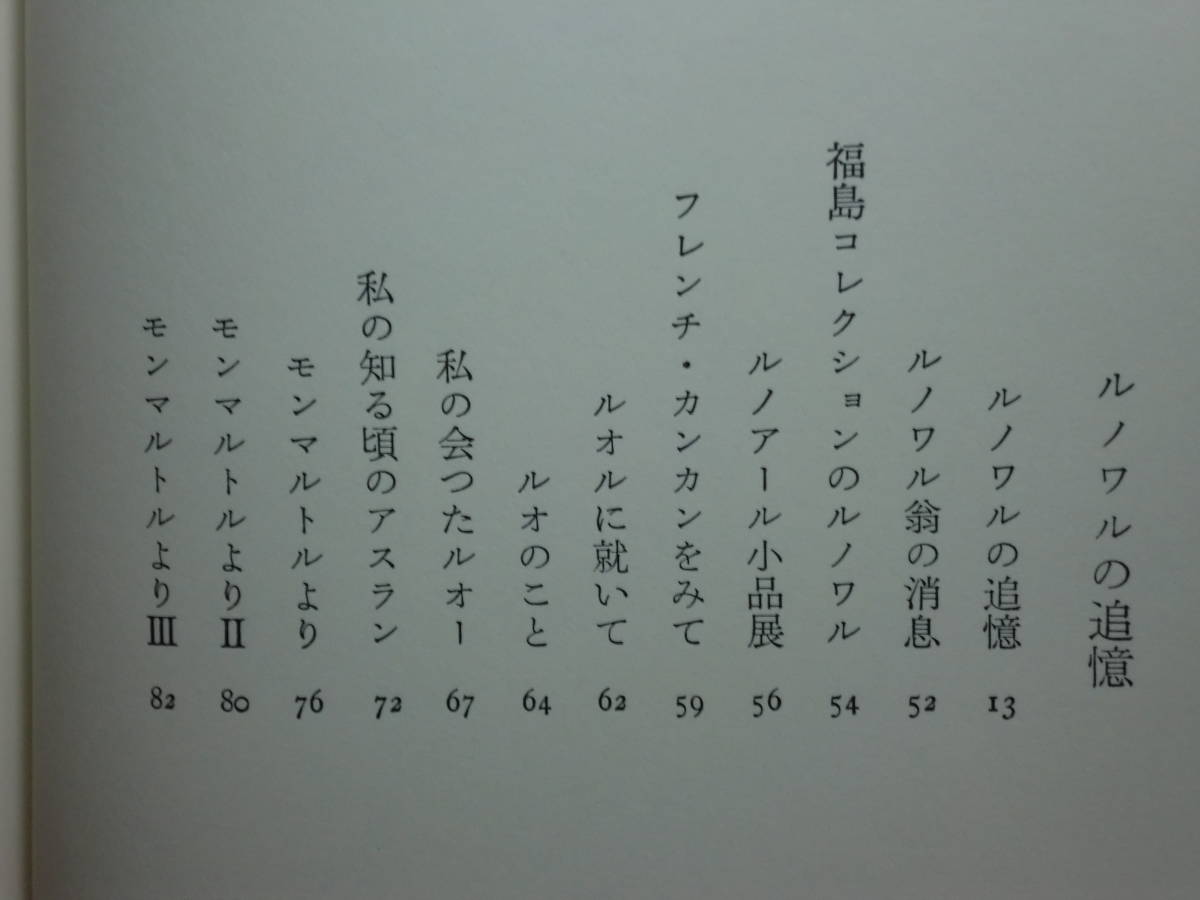 ルノワルの追憶
ルノワルの追憶 13
ルノワル翁の消息 52
福島コレクションのルノワル 54
ルノアール小品展 56
フレンチ・カンカンをみて 59
ルオルに就いて 62
ルオのこと 64
私の会つたルオー 67
私の知る頃のアスラン 72
モンマルトルより 76
モンマルトルよりⅡ 80
モンマルトルよりⅢ 82